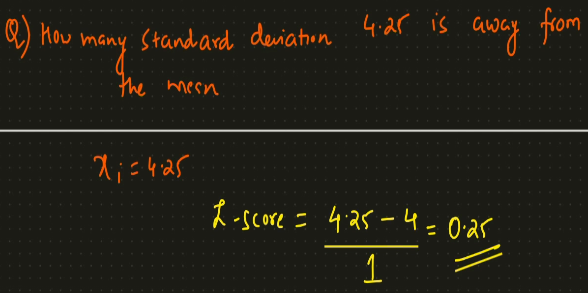 Q) How many standard deviation 4.25 is away from
the mean
x i = 4.25
Z-score = 4.25 - 4 = 0.25
1